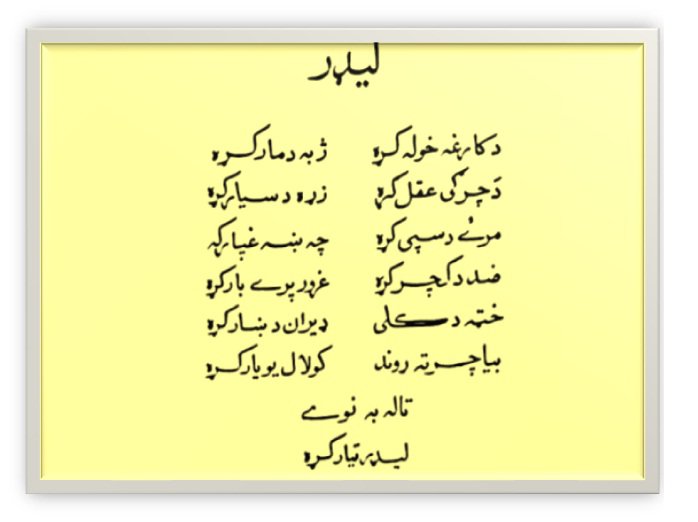 لیډر
د کارغه خوله کړه ژبه د مار کړه
د چرګی عقل کړه زړه د سیار کړه
مرئے د سپی کړه چه ښه غپار کړه
ضد د کچر کړه غرور پرے بار کړه
خټه د کلی ډیران د ښار کړه
بیا چرته روند کولال یو یار کړه
تاله به نوے
لیډر تیار کړه